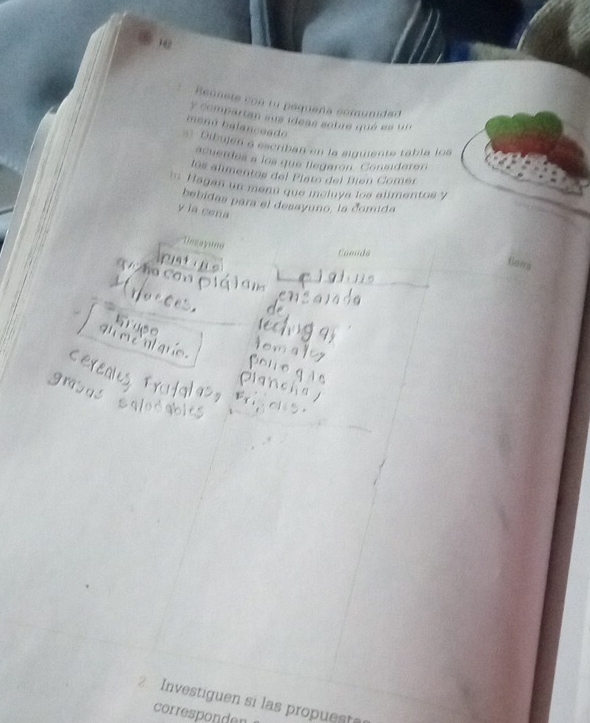 162
Reúnete con tu pequeña comunidad
y compartan sus ideas sobre qué es un
menú balanceado
a) Dibujen o escriban en la siguiente tabla los
acuerdos a los que llegaron. Consideren
los alimentos del Plato del Bien Comer
b) Hagan un menú que incluya los alimentos y
bebidas para el desayuno, la comida
y la cena
Desayuno
Comida
Cena
platillo
con platam
y nueces.
Grupo
alimentario.
cereales, frutalass
grasas saludables
platillo
ensalada
de
lechuga,
tomates
pollo a la
plancha,
Frijoles.
2 Investiguen si las propuestas
corresponden